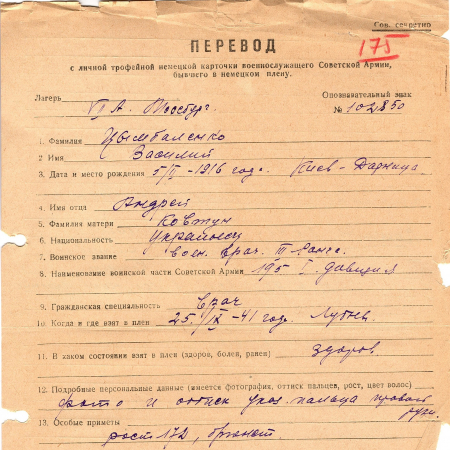 Сов. секретно
175
ПЕРЕВОД
с личной трофейной немецкой карточки военнослужащего Советской Армии,
бывшего в немецком плену.
Лагерь VII А. Моосбург. Опознавательный знак
№ 102850
1. Фамилия Цымбаленко
2. Имя Василий
3. Дата и место рождения 5/II-1916 года. Киев-Дарница
4. Имя отца Андрей
5. Фамилия матери Ковтун
6. Национальность Украинец
7. Воинское звание воен. врач. III ранга.
8. Наименование воинской части Советской Армии 195 дивизия
9. Гражданская специальность врач
10. Когда и где взят в плен 25/IX-41 года. Лубны.
11. В каком состоянии взят в плен (здоров, болен, ранен) здоров.
12. Подробные персональные данные (имеется фотография, оттиск пальцев, рост, цвет волос)
фото и оттиск указ. пальца правой
руки.
13. Особые приметы
рост 172, брюнет.